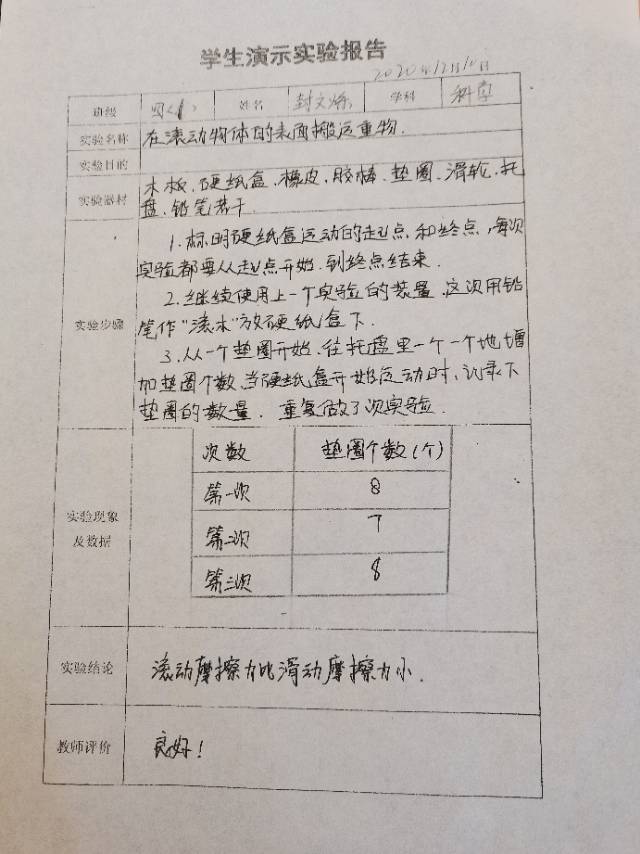 学生演示实验报告
2020年12月10日
班级 四(1) 姓名 封文烁 学科 科学
实验名称 在滚动物体的表面搬运重物.
实验目的
实验器材 木板、硬纸盒、橡皮、胶棒、垫圈、滑轮、托
盘、铅笔若干.
实验步骤
1.标明硬纸盒运动的起点和终点,每次
实验都要从起点开始,到终点结束.
2.继续使用上一个实验的装置,这次用铅
笔作“滚木”放硬纸盒下.
3.从一个垫圈开始,往托盘里一个一个地增
加垫圈个数,当硬纸盒开始运动时,记录下
垫圈的数量. 重复做了次实验.
实验现象
及数据
次数 垫圈个数(个)
第一次 8
第二次 7
第三次 8
实验结论 滚动摩擦力比滑动摩擦力小.
教师评价 良好!